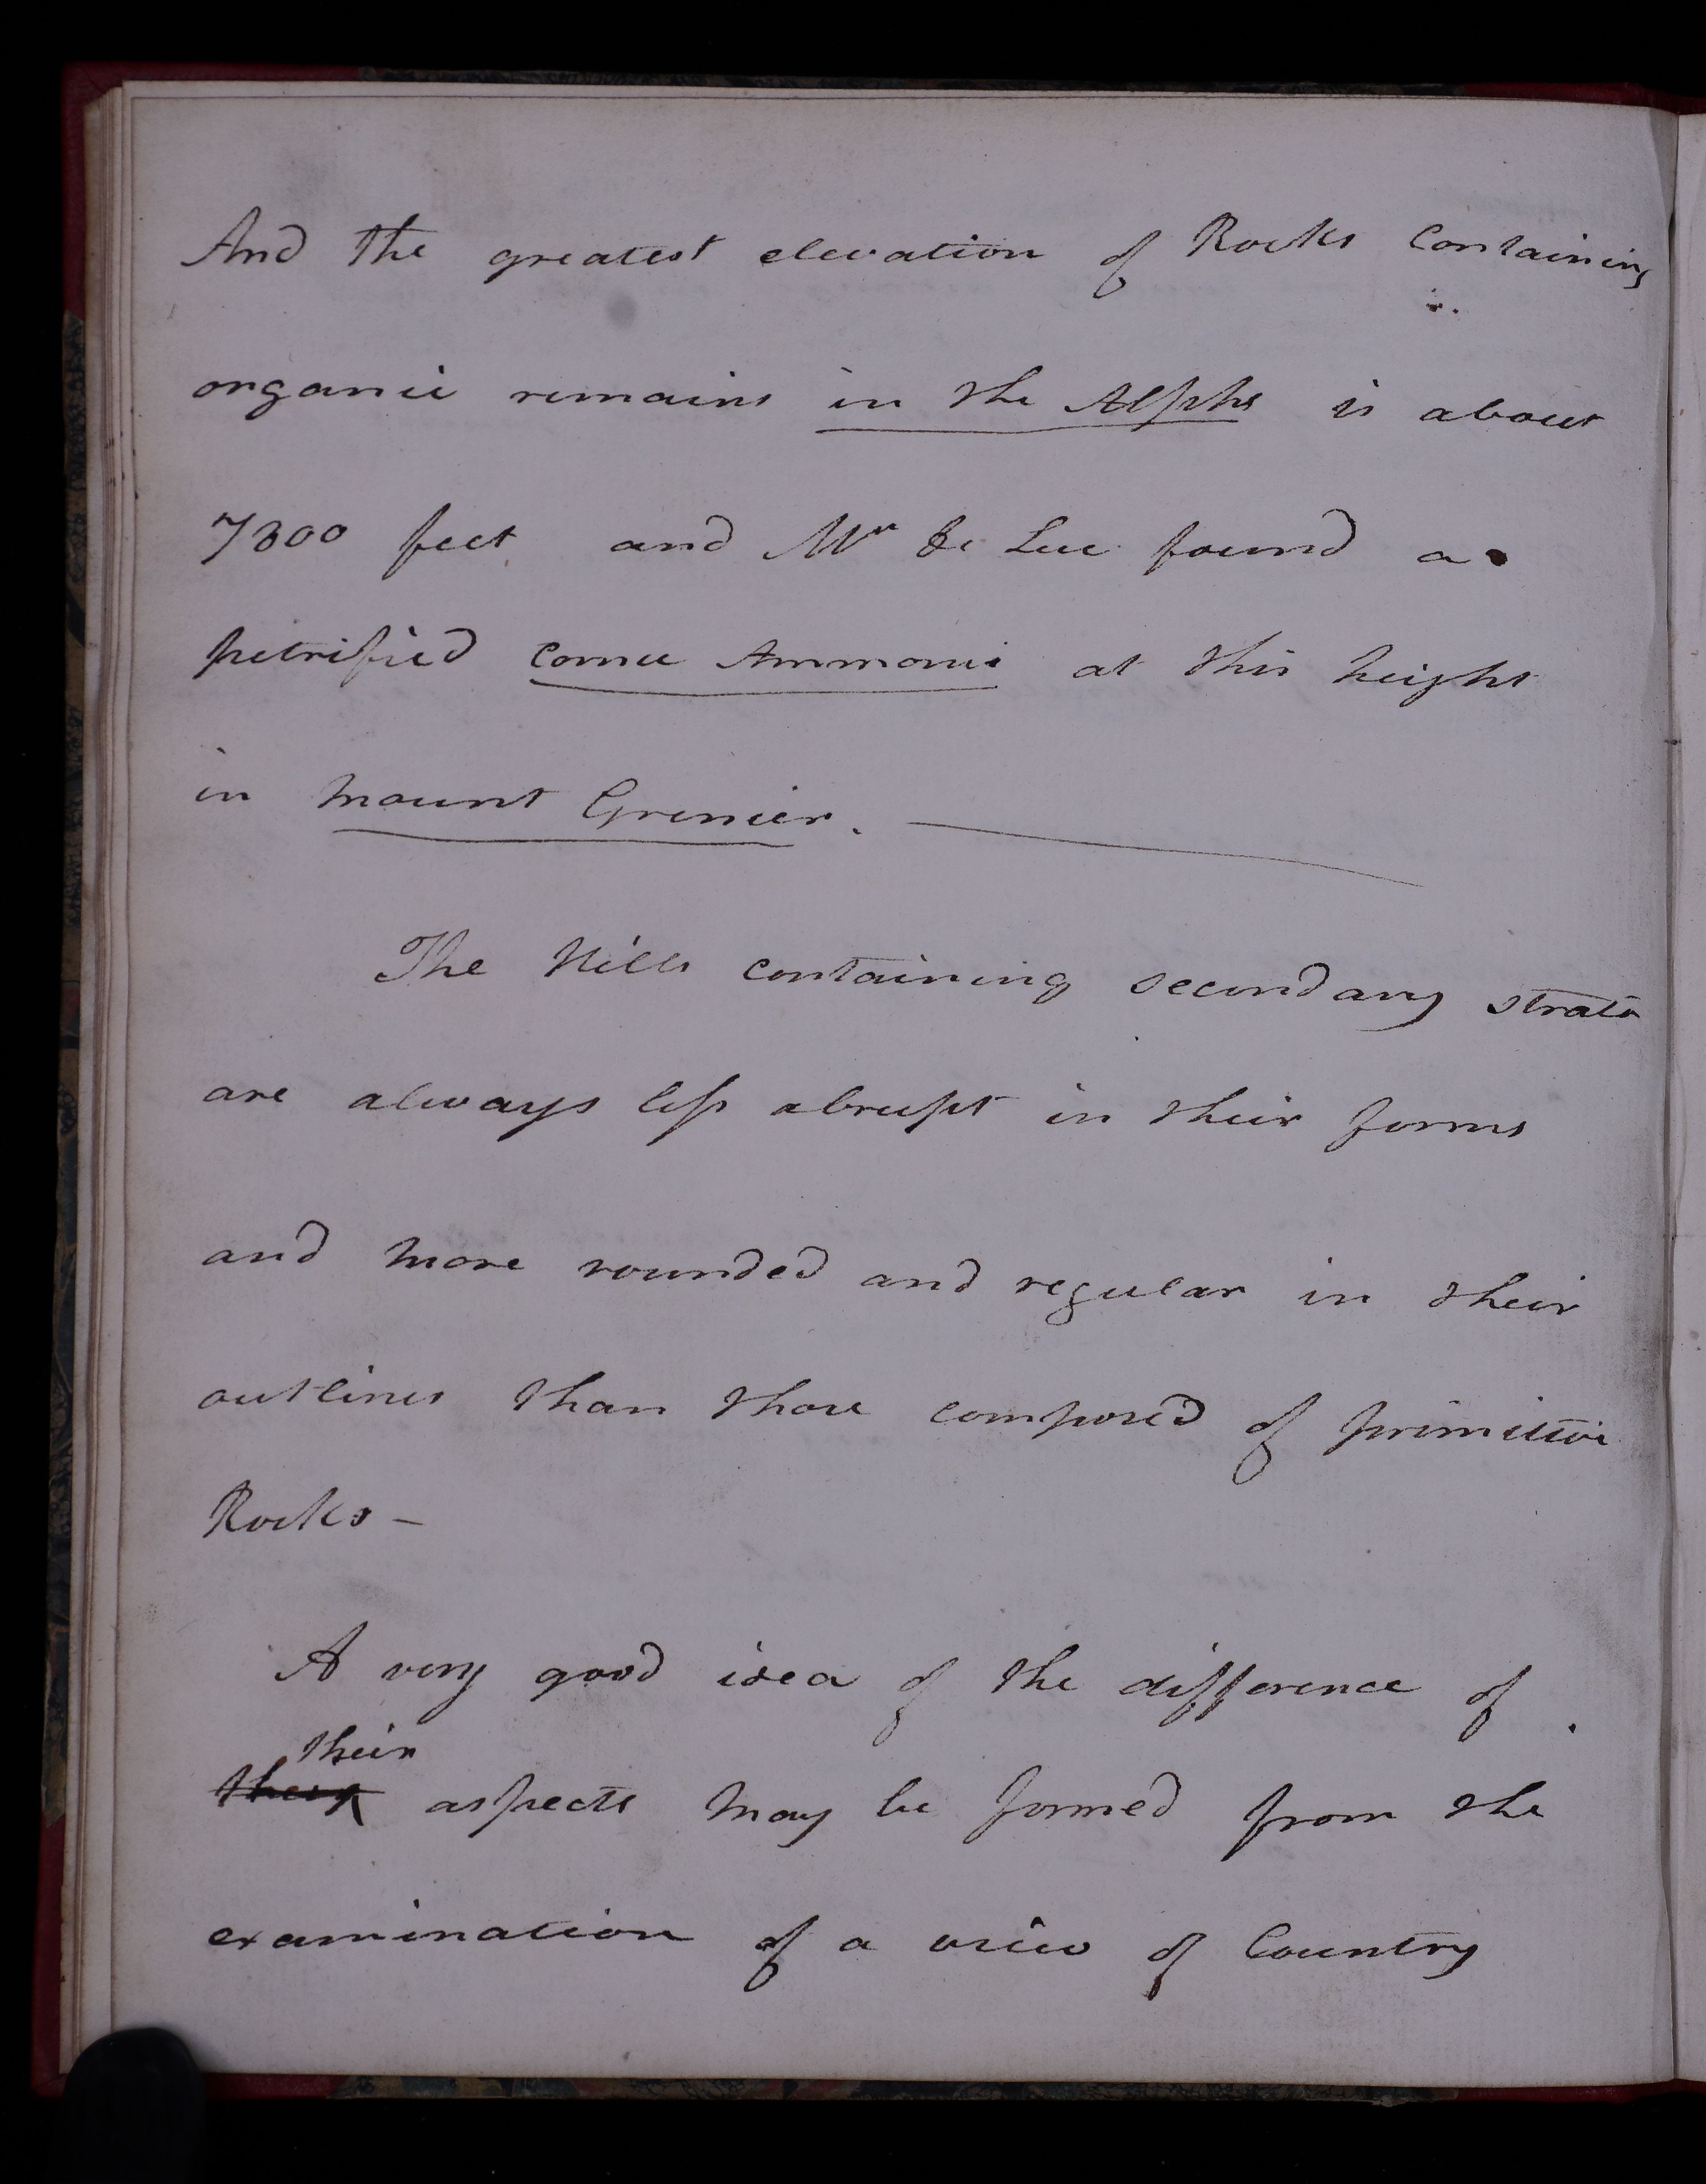 And the greatest elevation of Rocks Containing
organic remains in the Alphs is about
7800 feet and Mr De Luc found a
petrified cornu Ammoni at this height
in Mount Grenier.
The Hills containing secondary strata
are always less abrupt in their forms
and more rounded and regular in their
outlines than those composed of primitive
Rocks –
A very good idea of the difference of
their
aspects may be formed from the
examination of a view of Country